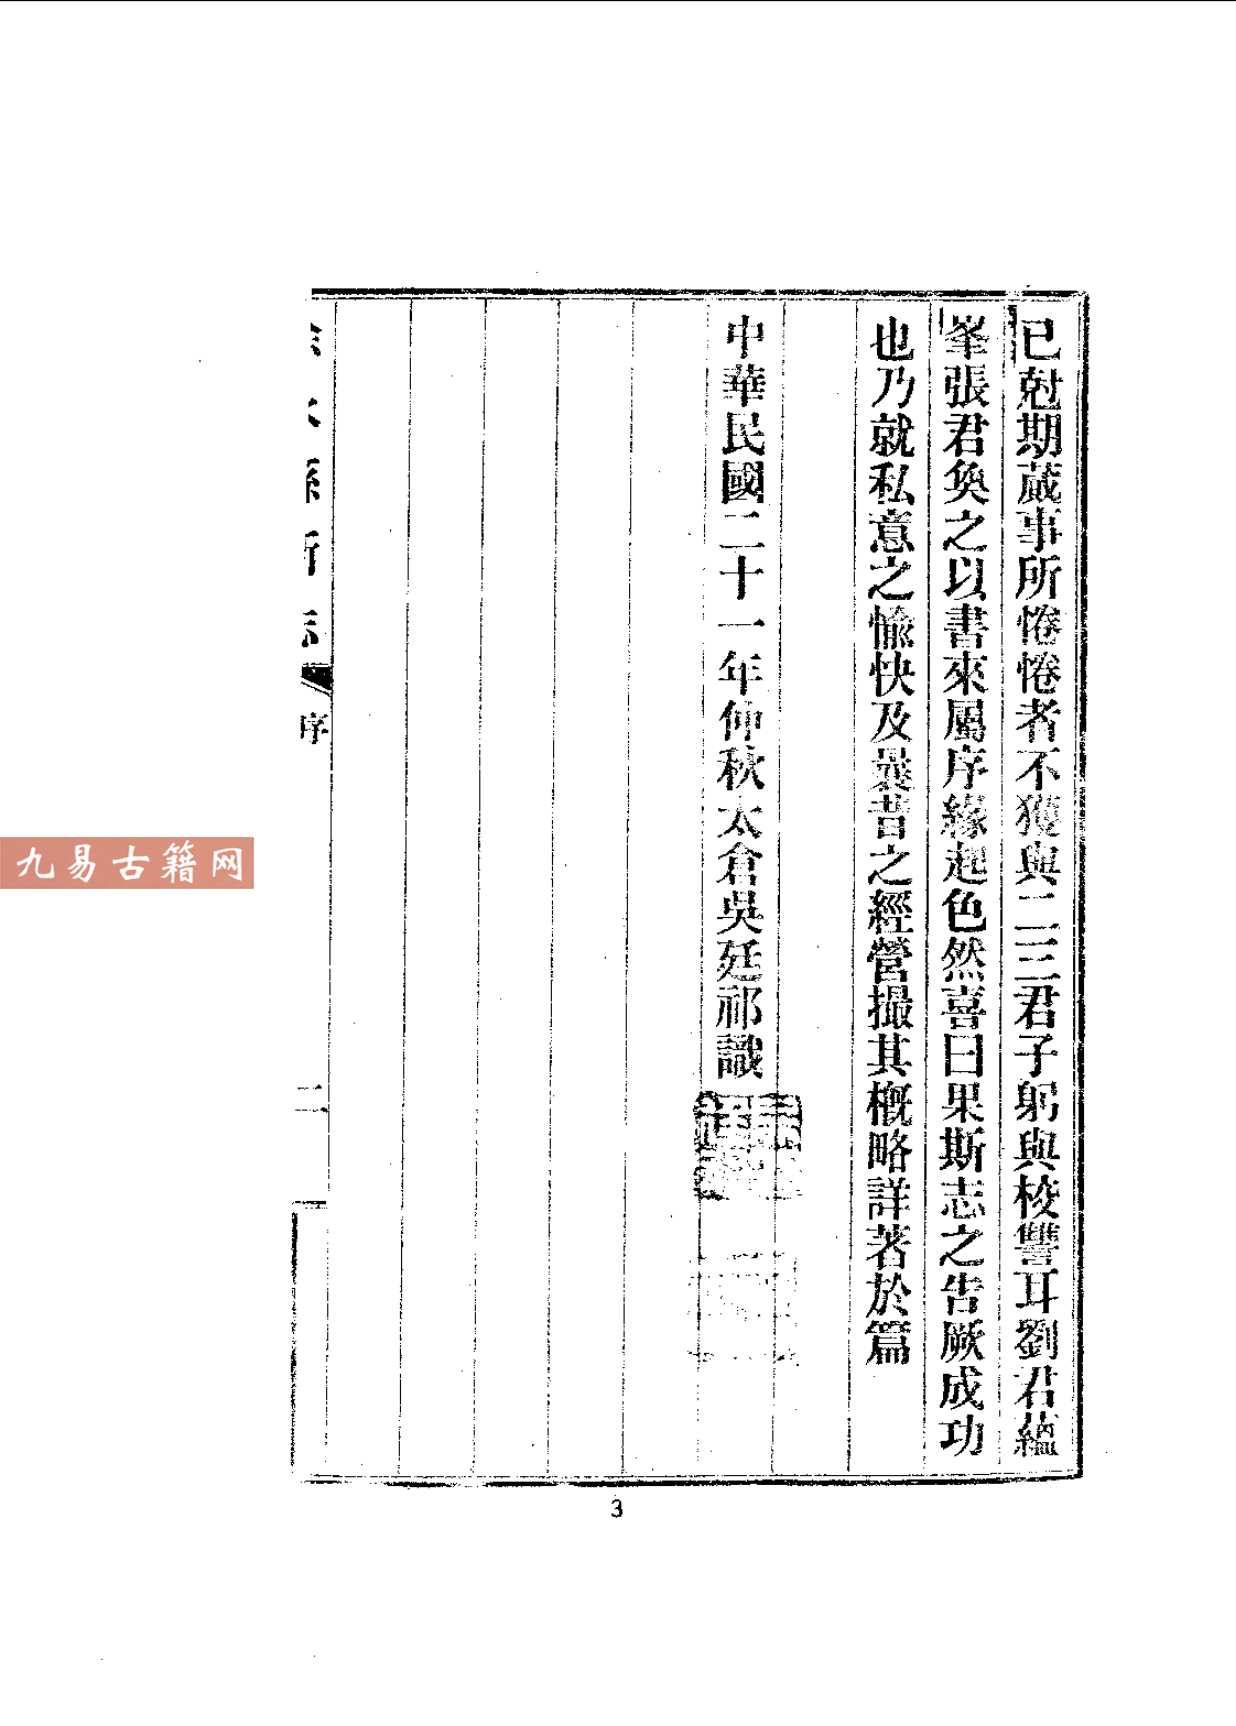 已尅期蕆事所惓惓者不獲與二三君子躬與校讐耳劉君蘊
峯張君奐之以書來屬序緣起色然喜曰果斯志之告厥成功
也乃就私意之愉快及曩昔之經營撮其概略詳著於篇
中華民國二十一年仲秋太倉吳廷祁識
縣新志
序
二
九易古籍网
3